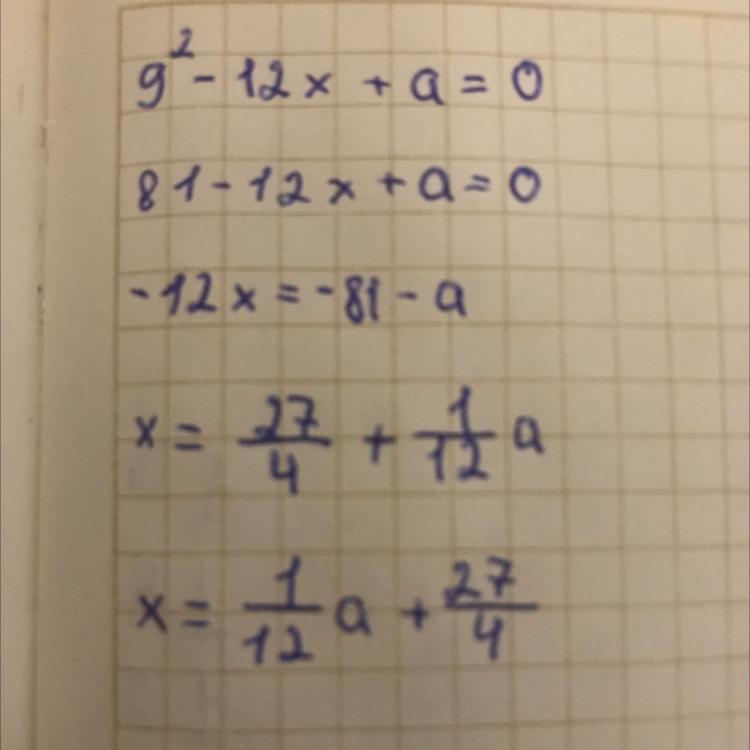 9² - 12x + a = 0
81 - 12x + a = 0
-12x = -81 - a
x = 27/4 + 1/12 a
x = 1/12 a + 27/4